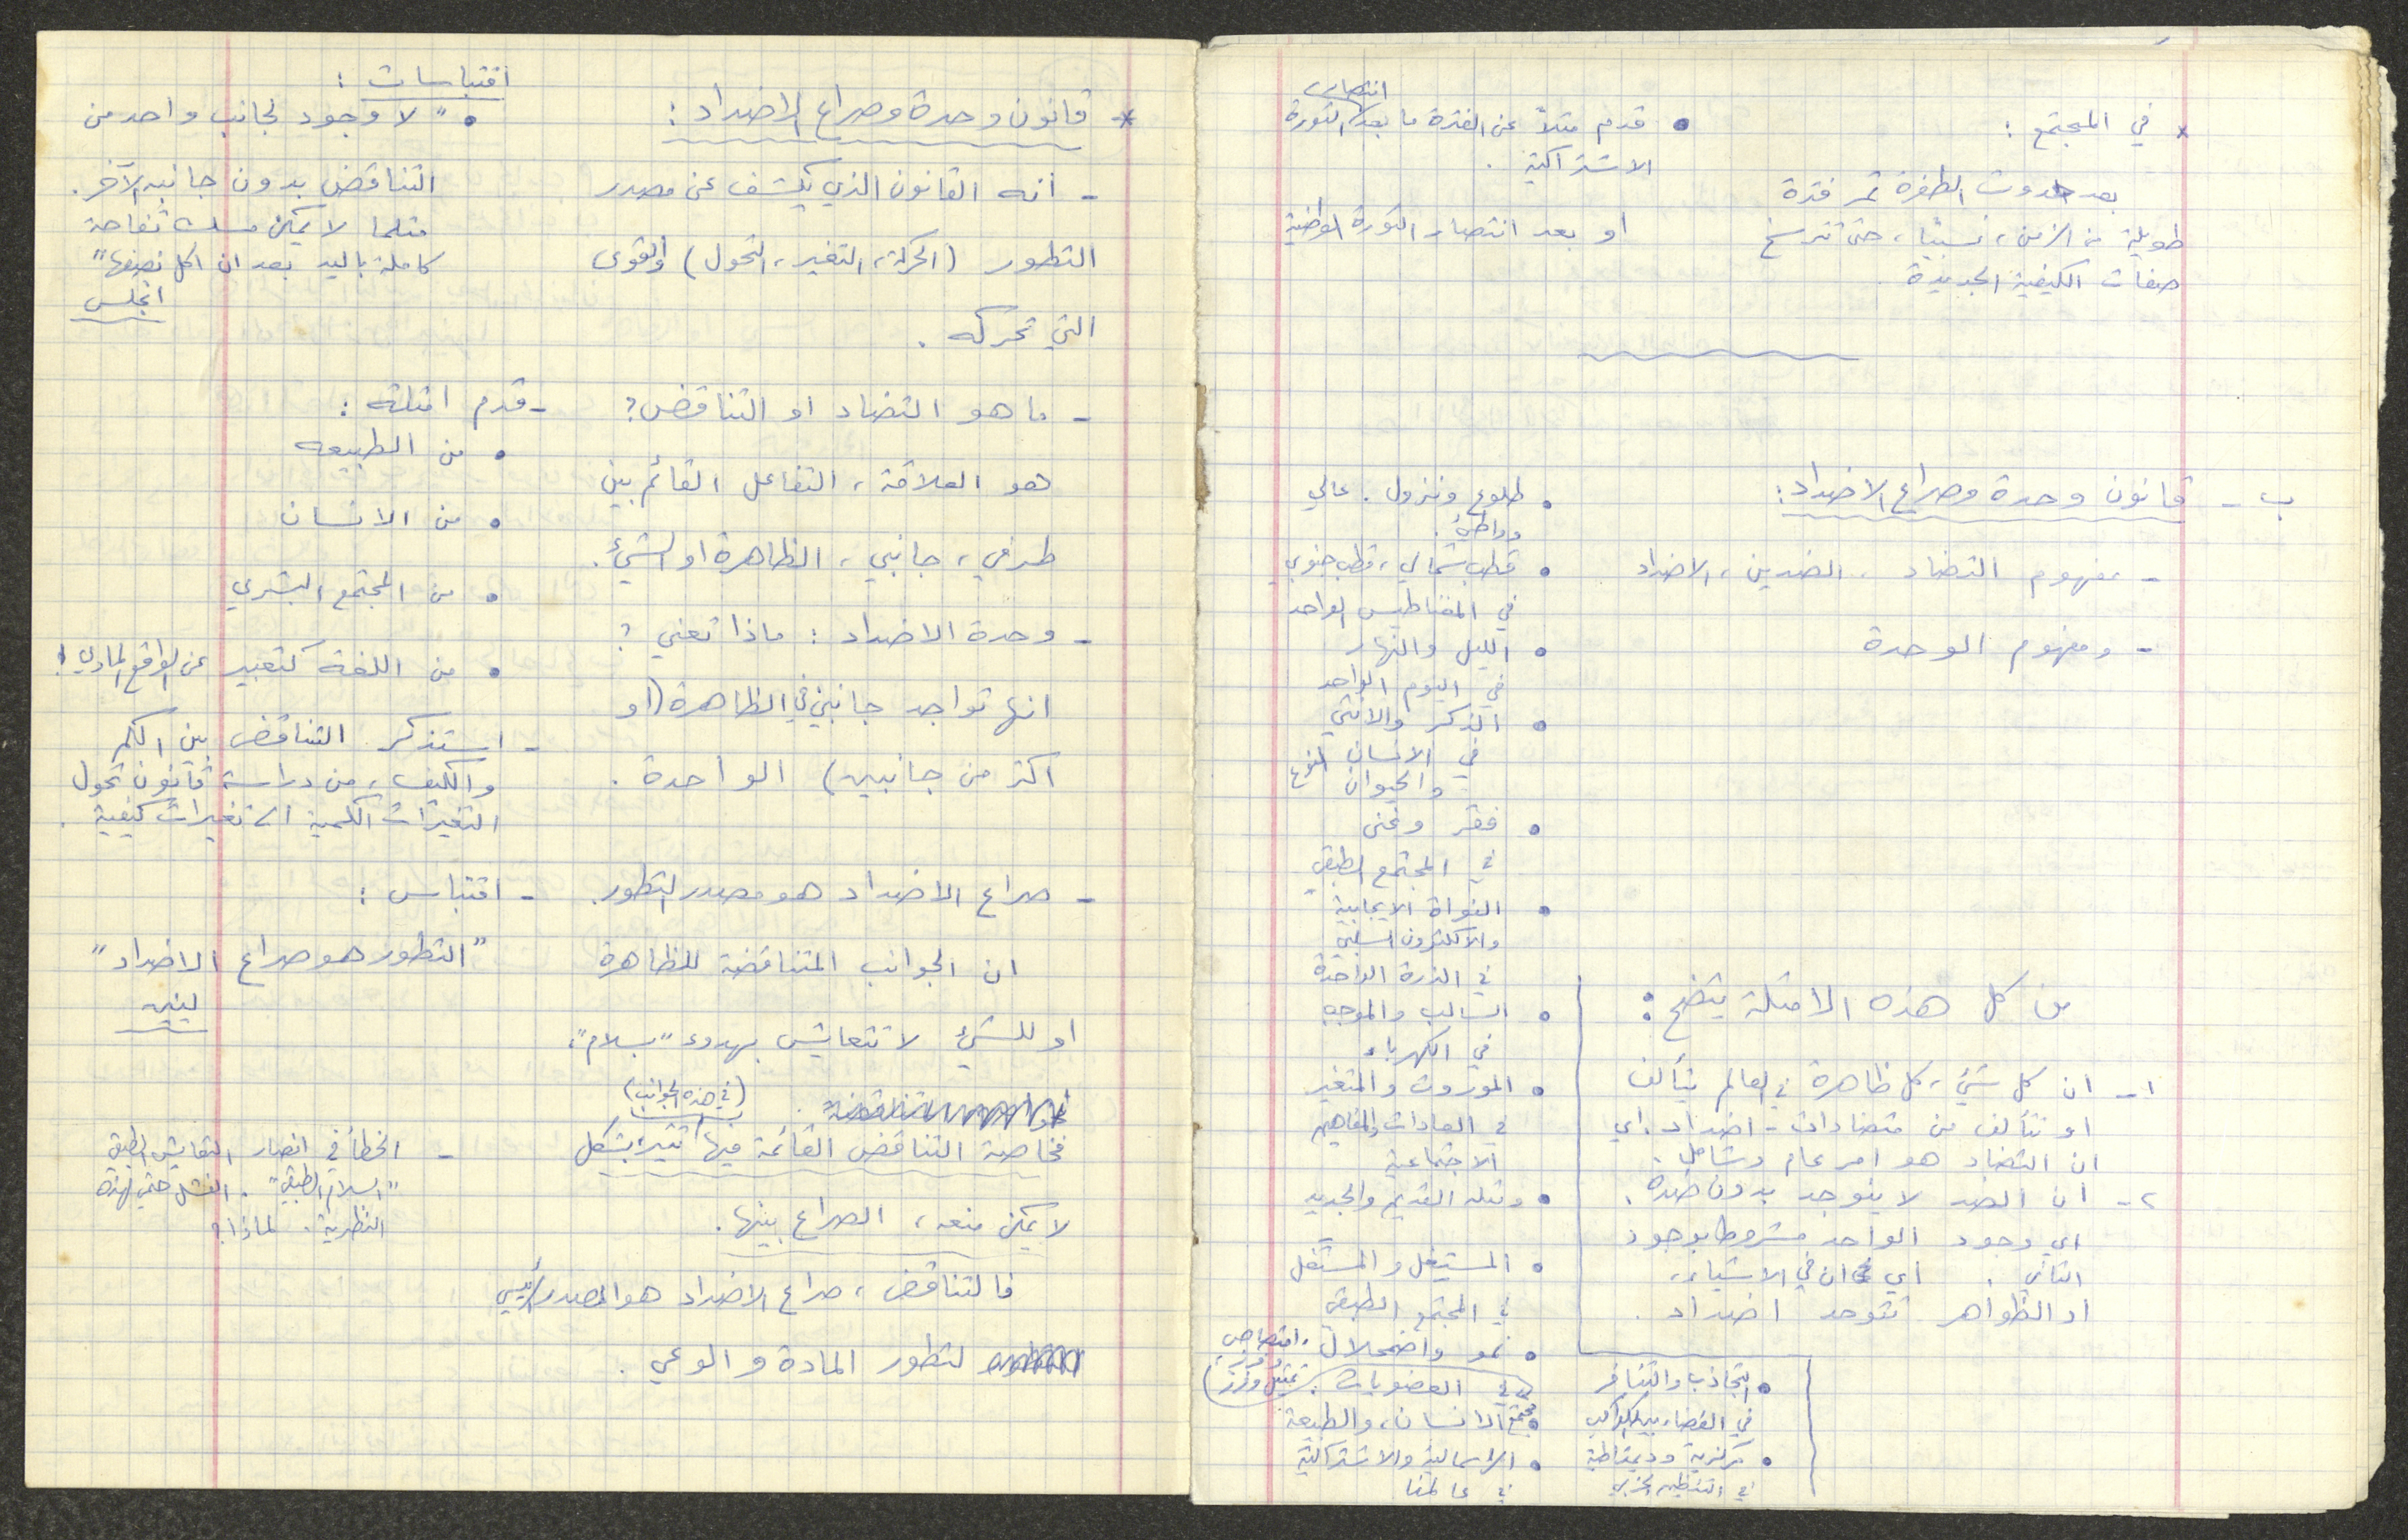 * في المجتمع :
بعد حدوث الطفرة تمر فترة
طويلة من الزمن، نسبيًا، حتى تترسخ
صفات الكيفية الجديدة
• قدم مثلاً عن الفترة ما بعد انتصار الثورة
الاشتراكية .
او بعد انتصار الثورة الوطنية
ب - قانون وحدة وصراع الاضداد:
- مفهوم التضاد ، الضدين، الاضداد
- ومفهوم الوحدة
• طلوع ونزول . عالي
وواطئ.
• قطب شمالي، قطب جنوبي
في المغناطيس الواحد
• الليل والنهار
في اليوم الواحد
• الذكر والانثى
في الانسان
والحيوان
• فقر وغنى
في المجتمع الطبقي
• النواة الايجابية
والالكترون السلبي
في الذرة الواحدة
• السالب والموجب
في الكهرباء
• الموروث والمتغير
في العادات والمفاهيم
الاجتماعية
• ومثله القديم والجديد
• المستغِل والمستغَل
في المجتمع الطبقي
• نمو واضمحلال ، امتصاص وفرز،
في العضويات . تمثيل وفرز
• مجتمع الانسان، والطبيعة
• الراسمالية والاشتراكية
في عالمنا
من كل هذه الامثلة يتضح :
١- ان كل شيء، كل ظاهرة في العالم يتألف
او تتألف من متضادات - اضداد . اي
ان التضاد هو امر عام وشامل.
٢- ان الضد لا يتوجد بدون ضده.
اي وجود الواحد مشروط بوجود
الثاني . اي ان في الاشياء،
او الظواهر تتوحد اضداد .
• التجاذب والتنافر
في الفضاء بين الكواكب
• مركزية وديمقراطية
في التنظيم الحزبي
* قانون وحدة وصراع الاضداد :
- انه القانون الذي يكشف عن مصدر
التطور (الحركة، التغير، التحول) والقوى
التي تحركه .
- ما هو التضاد او التناقض؟
هو العلاقة ، التفاعل القائم بين
طرفي ، جانبي ، الظاهرة او الشيء.
- وحدة الاضداد : ماذا تعني ؟
انها تواجد جانبين في الظاهرة (او
اكثر من جانبين) الواحدة .
- صراع الاضداد هو مصدر التطور.
ان الجوانب المتناقضة للظاهرة
او للشيء لا تتعايش بهدوء "بسلام"،
(في هذه الجوانب)
فخاصة التناقض القائمة فيها تثير بشكل
لا يمكن منعه، الصراع بينها.
فالتناقض ، صراع الاضداد هو المصدر الرئيسي
لتطور المادة و الوعي .
اقتباسات :
• "لا وجود لجانب واحد من
التناقض بدون جانبه الآخر .
مثلما لا يمكن مسك تفاحة
كاملة باليد بعد ان اكل نصفها"
انجلس
- قدم امثلة :
• من الطبيعه
• من الانسان
• من المجتمع البشري
• من اللغة كتعبير عن الواقع المادي !
- استذكر التناقض بين الكم
والكيف، من دراسة قانون تحول
التغيرات الكمية الى تغيرات كيفية .
- اقتباس :
"التطور هو صراع الاضداد"
لينين
- الخطأ في انصار التعايش الطبقي
"السلام الطبقي" . الفشل حتمي لهذه
النظرية . لماذا؟